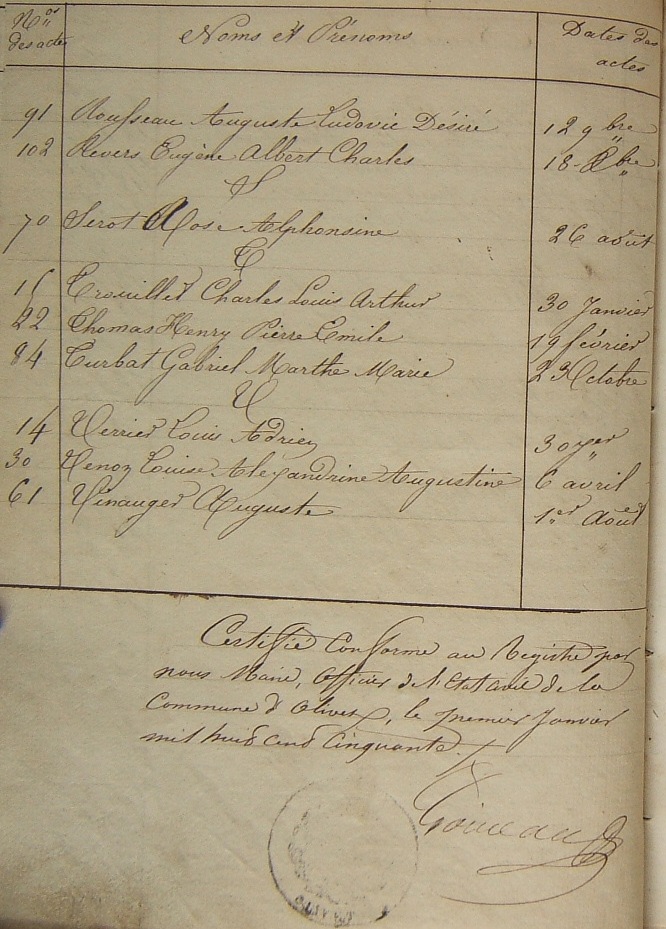 Nos des actes Noms et Prénoms Dates des actes
91 Rousseau Auguste Ludovic Désiré 12 9bre
102 Revers Eugène Albert Charles 18 Xbre
S
70 Serot Rose Alphonsine 26 août
T
15 Trouillet Charles Louis Arthur 30 Janvier
22 Thomas Henry Pierre Emile 19 février
84 Turbat Gabriel Marthe Marie 23 Octobre
V
14 Verrier Louis Adrien 30 Jer
30 Venoz Louise Alexandrine Augustine 6 avril
61 Vinauger Auguste 1er Août
Certifié Conforme au Registre par
nous Maire, Officier de l'Etat civil de la
Commune d'Olivet, le premier Janvier
mil huit cent cinquante.